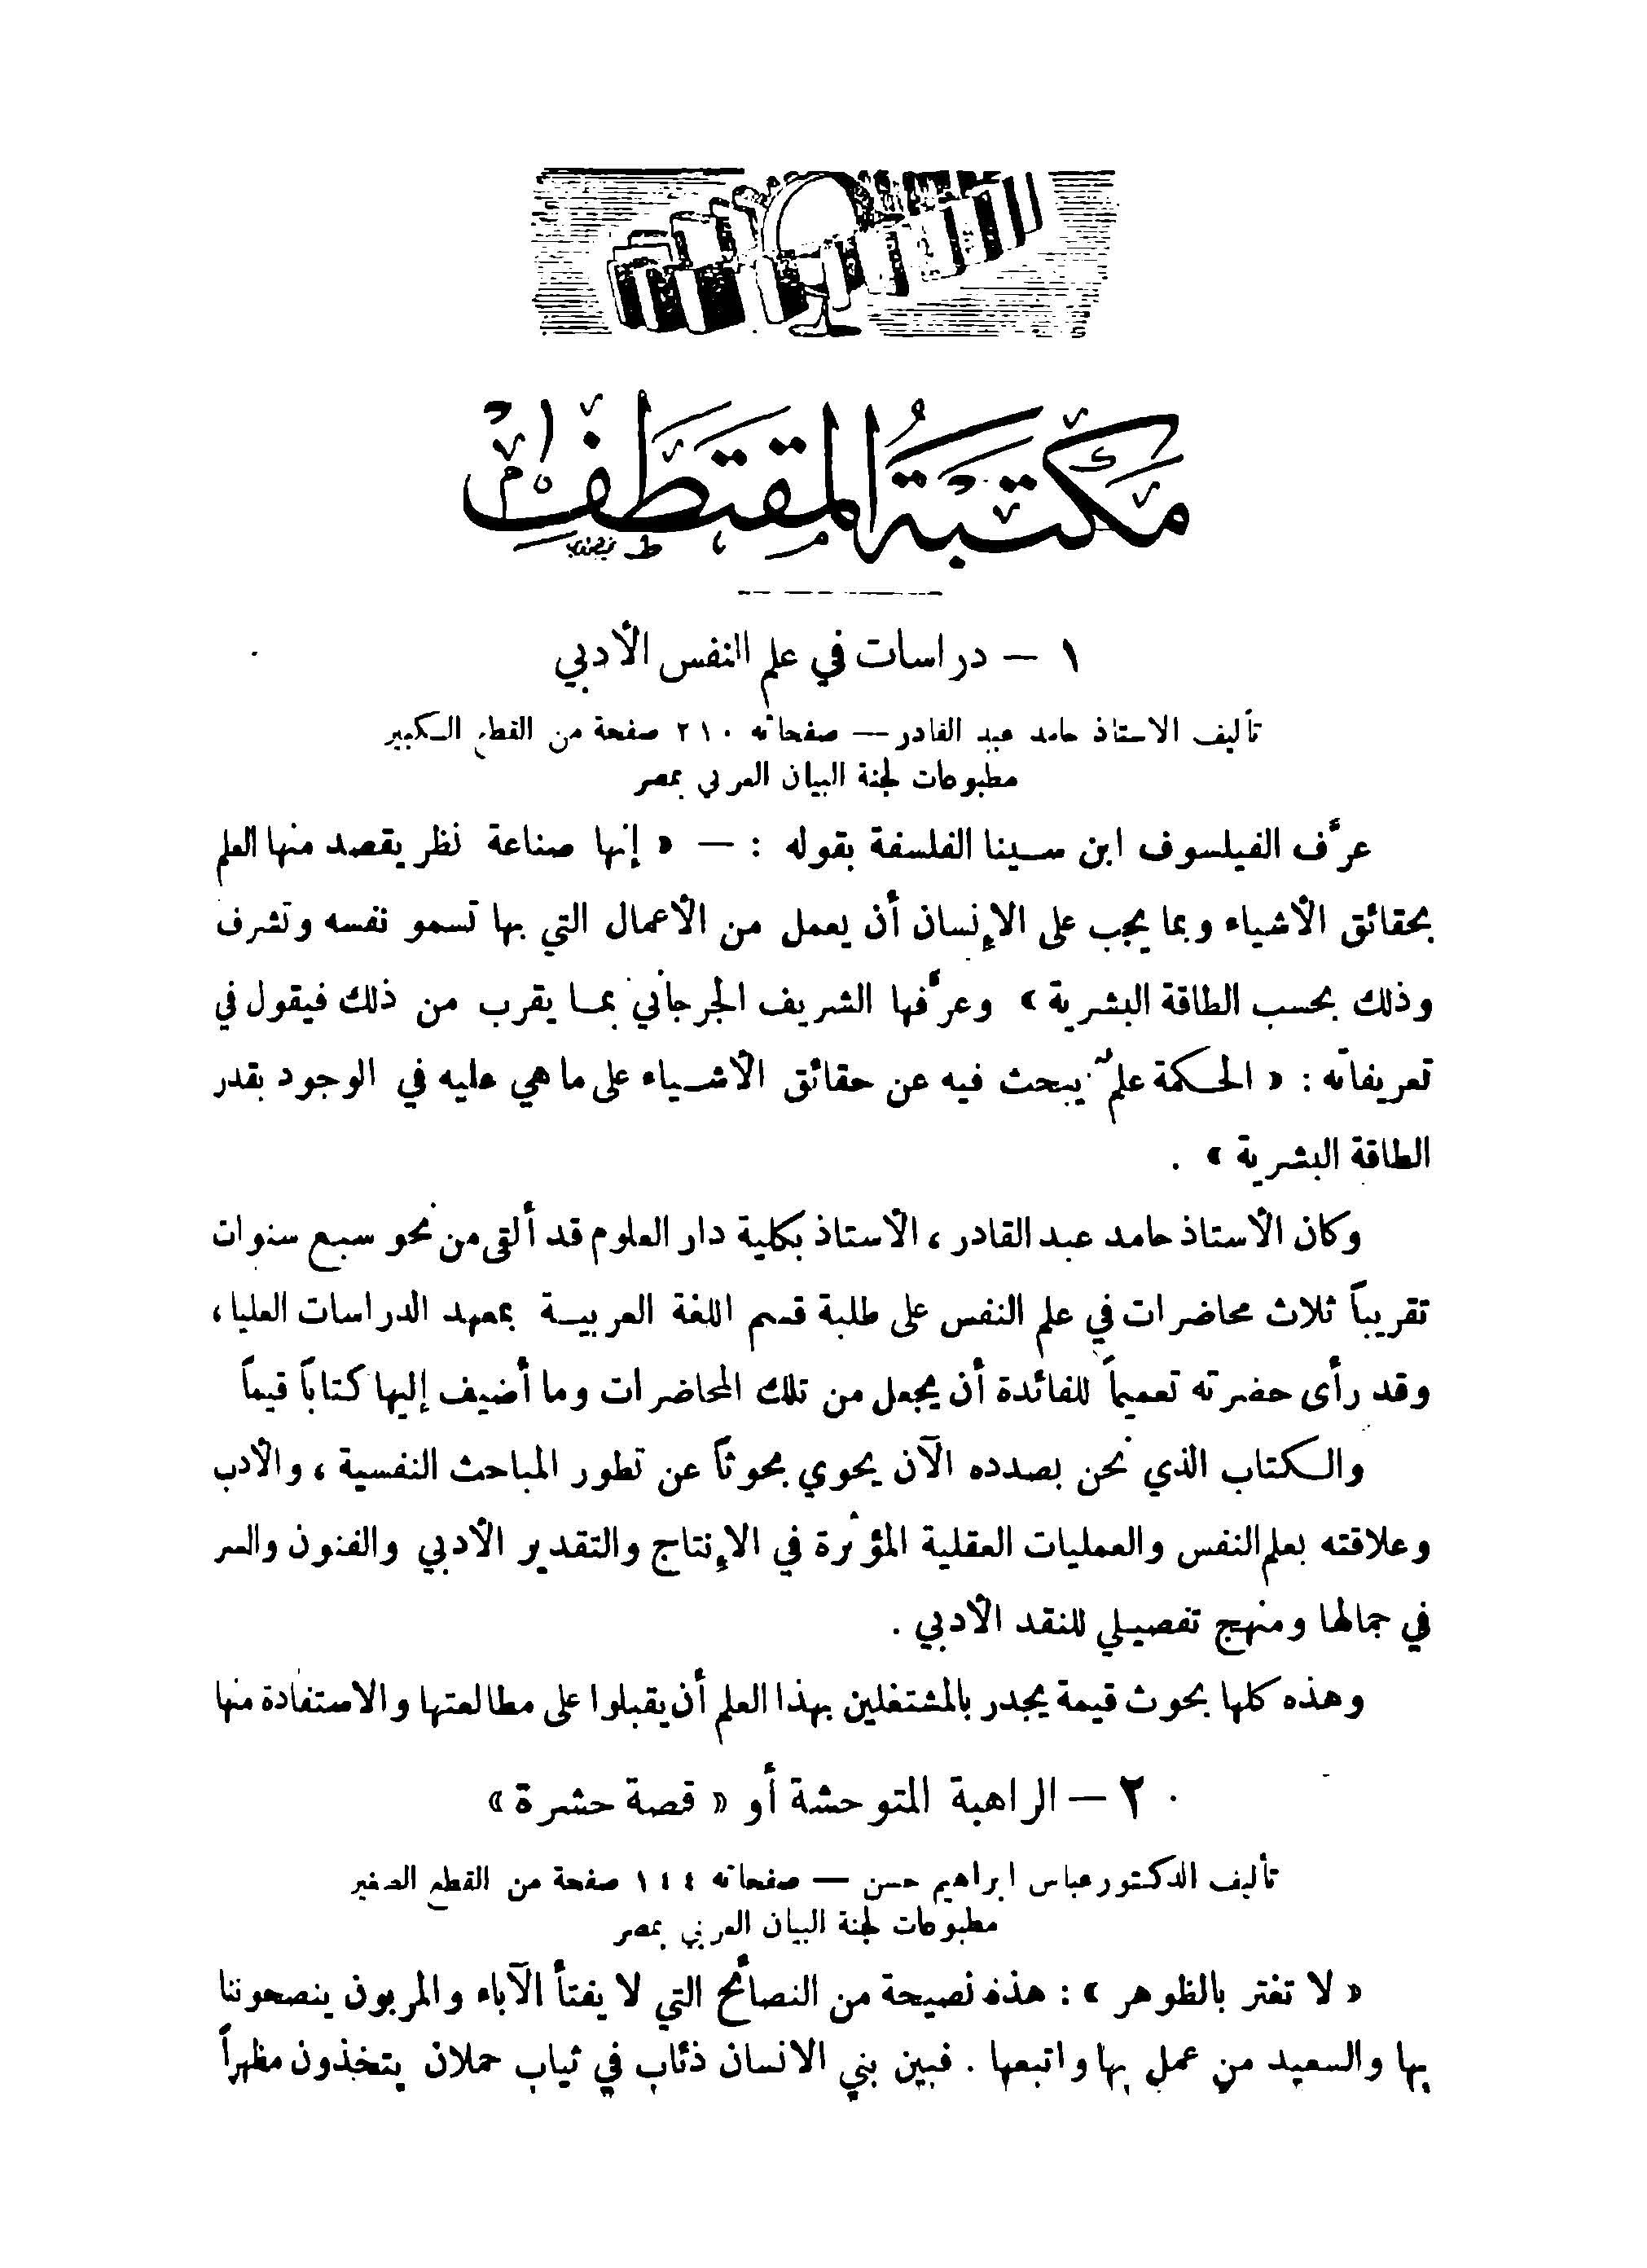 مكتبة المقتطف
١ — دراسات في علم النفس الأدبي
تأليف الاستاذ حامد عبد القادر — صفحاته ٢١٠ صفحة من القطع الكبير
مطبوعات لجنة البيان العربي بمصر
عرَّف الفيلسوف ابن سينا الفلسفة بقوله : — « إنها صناعة نظر يقصد منها العلم
بحقائق الأشياء وبما يجب على الإنسان أن يعمل من الأعمال التي بها تسمو نفسه وتشرف
وذلك بحسب الطاقة البشرية » وعرَّفها الشريف الجرجاني بما يقرب من ذلك فيقول في
تعريفاته : « الحكمة علمٌ يبحث فيه عن حقائق الأشياء على ما هي عليه في الوجود بقدر
الطاقة البشرية » .
وكان الأستاذ حامد عبد القادر ، الأستاذ بكلية دار العلوم قد ألقى من نحو سبع سنوات
تقريباً ثلاث محاضرات في علم النفس على طلبة قسم اللغة العربية بمعهد الدراسات العليا ،
وقد رأى حضرته تعميماً للفائدة أن يجعل من تلك المحاضرات وما أضيف إليها كتاباً قيماً
والكتاب الذي نحن بصدده الآن يحوي بحوثاً عن تطور المباحث النفسية ، والأدب
وعلاقته بعلم النفس والعمليات العقلية المؤثرة في الإنتاج والتقدير الأدبي والفنون والسر
في جمالها ومنهج تفصيلي للنقد الأدبي .
وهذه كلها بحوث قيمة يجدر بالمشتغلين بهذا العلم أن يقبلوا على مطالعتها والاستفادة منها
٢ — الراهبة المتوحشة أو « قصة حشرة »
تأليف الدكتور عباس ابراهيم حسن — صفحاته ١٤٤ صفحة من القطع الصغير
مطبوعات لجنة البيان العربي بمصر
« لا تغتر بالظوهر » : هذه نصيحة من النصائح التي لا يفتأ الآباء والمربون ينصحوننا
بها والسعيد من عمل بها واتبعها . فبين بني الانسان ذئاب في ثياب حملان يتخذون مظهراً